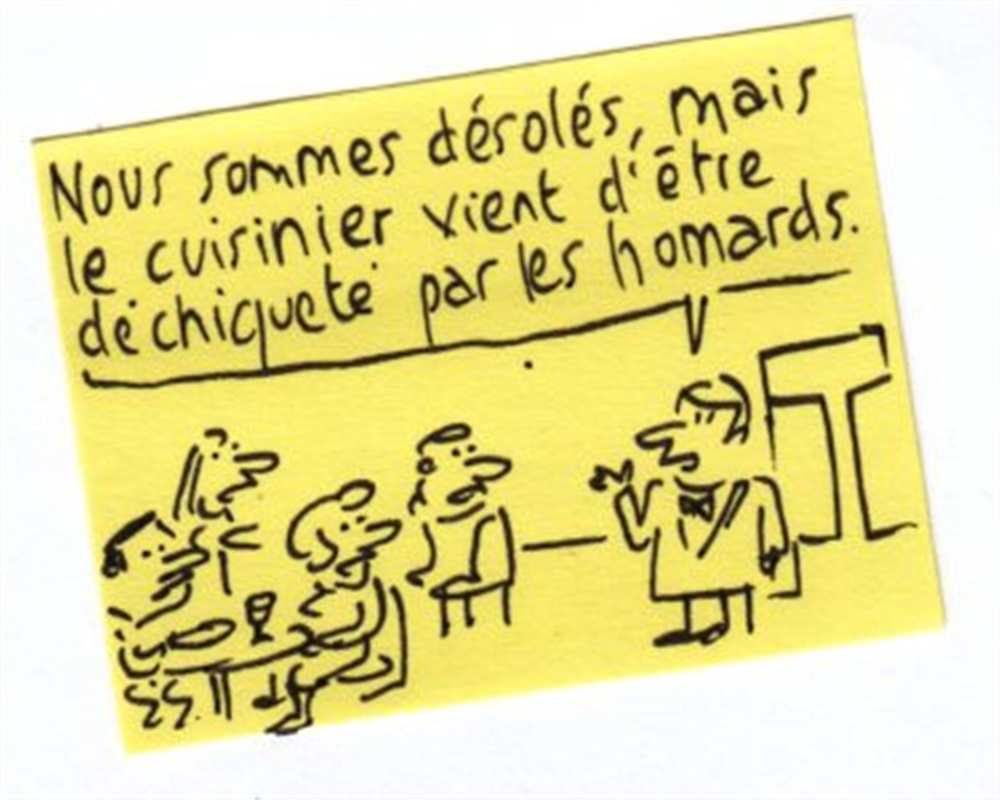 Nous sommes désolés, mais
le cuisinier vient d'être
déchiqueté par les homards.